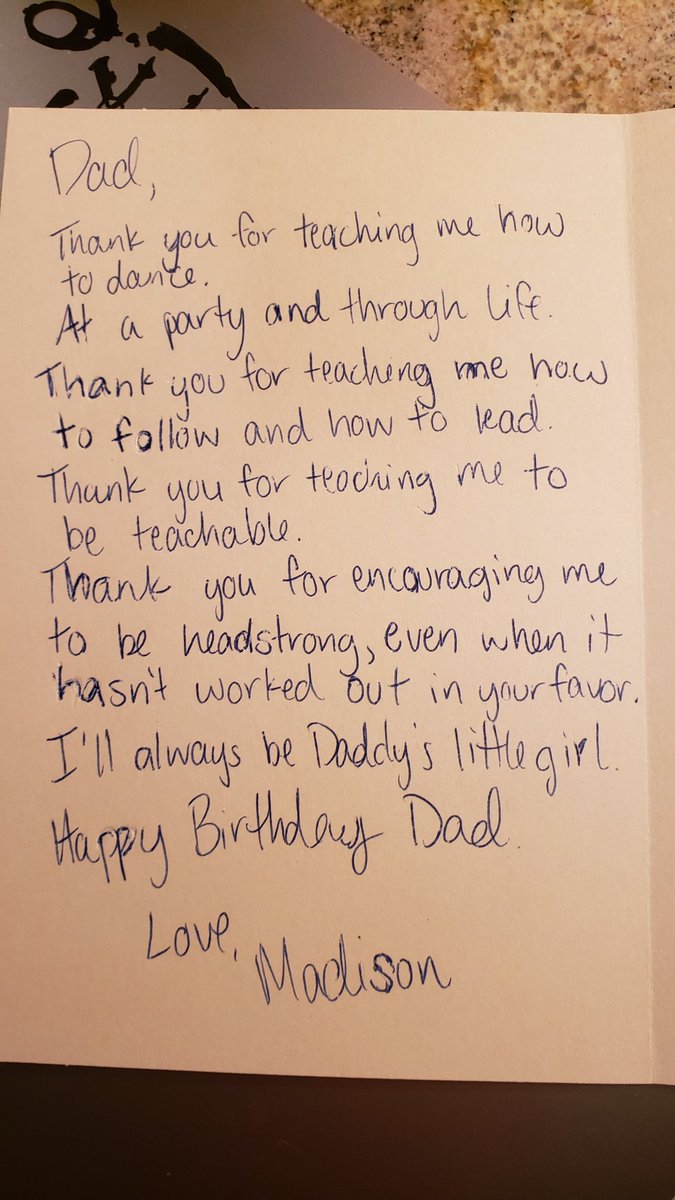 Dad,
Thank you for teaching me how
to dance.
At a party and through life.
Thank you for teaching me how
to follow and how to lead.
Thank you for teaching me to
be teachable.
Thank you for encouraging me
to be headstrong, even when it
hasn't worked out in your favor.
I'll always be Daddy's little girl.
Happy Birthday Dad.
Love,
Madison